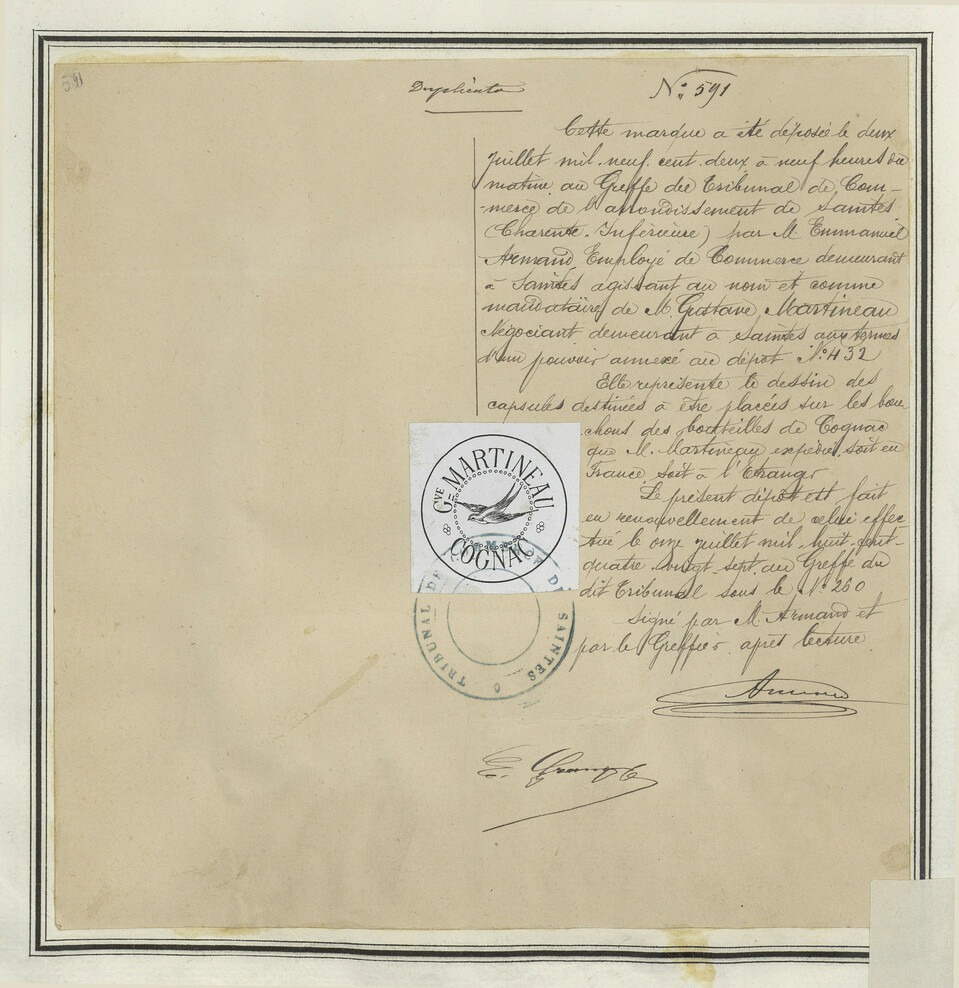 591
Duplicata
N° 591
Cette marque a été déposée le deux
juillet mil neuf cent deux à neuf heures du
matin au Greffe du Tribunal de Com-
-merce de l'arrondissement de Saintes
(Charente-Inférieure) par M Emmanuel
Armand, Employé de Commerce demeurant
à Saintes agissant au nom et comme
mandataire de M. Gustave Martineau
Négociant demeurant à Saintes aux termes
d'un pouvoir annexé au dépôt N° 432
Elle représente le dessin des
capsules destinées à être placées sur les bou-
chons des bouteilles de Cognac
que M. Martineau expédie soit en
France, soit à l'Etranger
Le présent dépôt est fait
en renouvellement de celui effec
tué le onze juillet mil huit-cent-
quatre vingt-sept au Greffe du
dit Tribunal sous le N° 260
Signé par M. Armand et
par le Greffier après lecture
GVE MARTINEAU
COGNAC
TRIBUNAL DE COMMERCE DE SAINTES
Armand